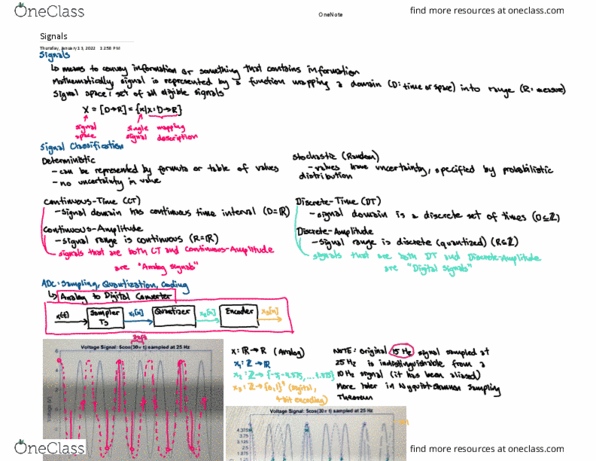 OneClass
OneNote
find more resources at oneclass.com
Signals
Thursday, January 13, 2022 1:250 PM
Signals
↳ means to convey information or something that contains information
Mathematically signal is represented by a function mapping a domain (D: time or space) into range (R: measure)
Signal space: set of all eligible signals
X = [D→R] = {x|x: D→R}
signal space
single mapping
signal description
Signal Classification
Deterministic
- can be represented by formula or table of values
- no uncertainty in value
Stochastic (Random)
- values have uncertainty, specified by probabilistic distribution
Continuous-Time (CT)
- signal domain has continuous time interval (D=ℝ)
Continuous-Amplitude
- signal range is continuous (R=ℝ)
signals that are both CT and Continuous-Amplitude
are "Analog Signals"
Discrete-Time (DT)
- signal domain is a discrete set of times (D⊆ℤ)
Discrete-Amplitude
- signal range is discrete (quantized) (R⊆ℤ)
signals that are both DT and Discrete-Amplitude
are "Digital Signals"
ADC: Sampling, Quantization, Coding
↳ Analog to Digital Converter
x(t) → Sampler Ts → x₁[n] → Quantizer → x₂[n] → Encoder → x₃[n]
Voltage Signal: 5cos(30π t) sampled at 25 Hz
x: ℝ→ℝ (Analog)
x₁: ℤ→ℝ
(digital,
4 bit encoding)
NOTE: original 15 Hz signal sampled at
25 Hz is indistinguishable from a
10 Hz signal (it has been aliased)
More later in Nyquist-Shannon Sampling
Theorem
Voltage Signal: 5cos(30π t) sampled at 25 Hz
4.375
3.75
OneClass
find more resources at oneclass.com